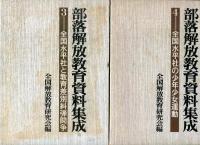 部落解放教育資料集成
3
全国水平社と教育差別糾弾闘争
全国解放教育研究会編
部落解放教育資料集成
4
全国水平社の少年少女運動
全国解放教育研究会編